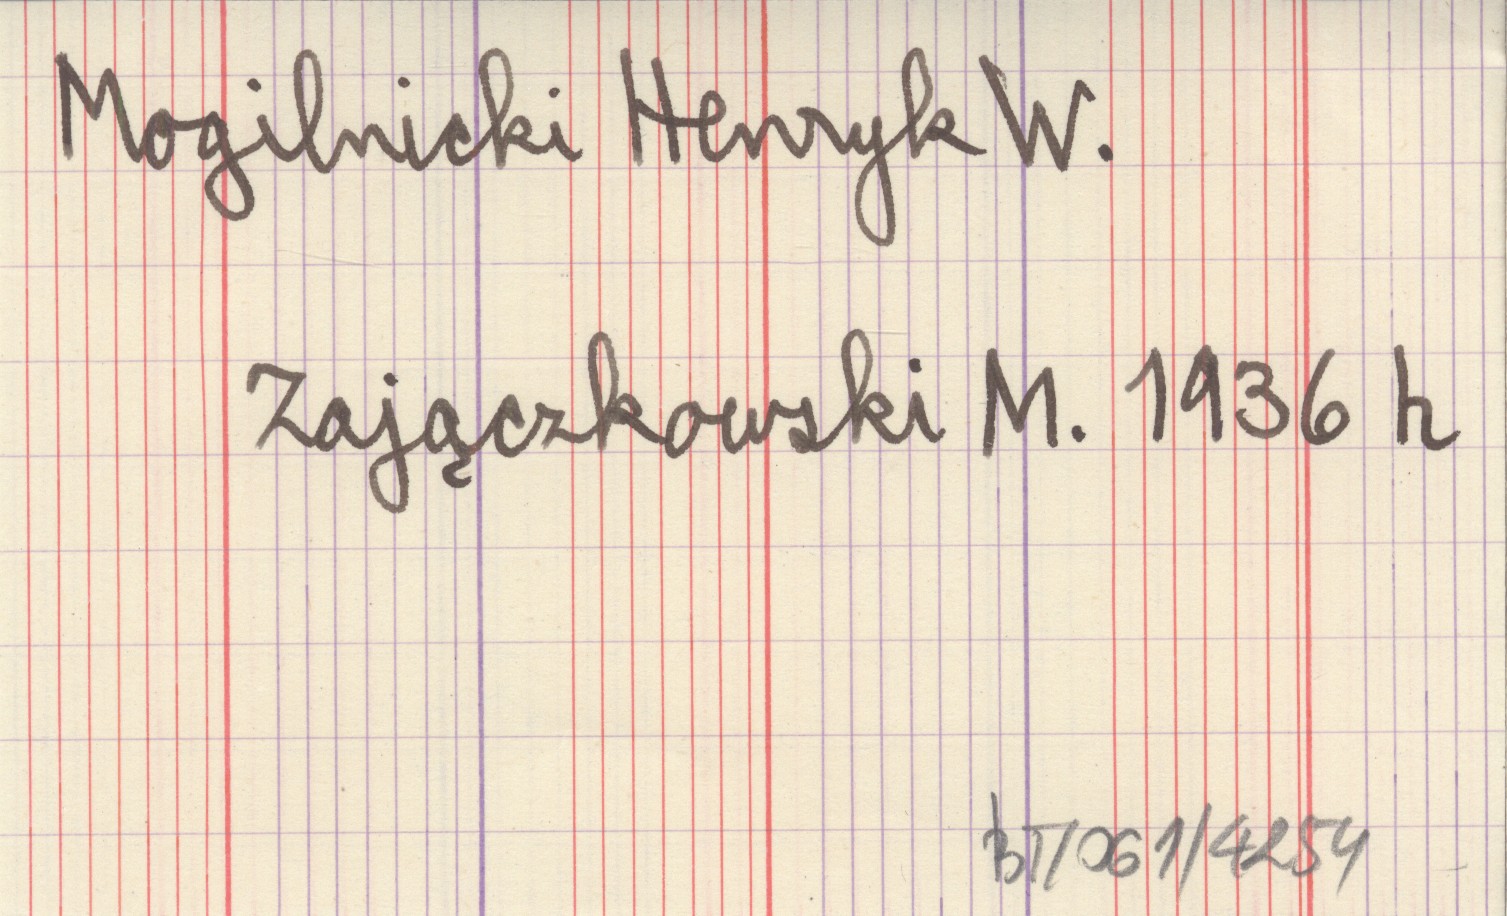 Mogilnicki Henryk W.
Zajączkowski M. 1936 h
BT/061/4254